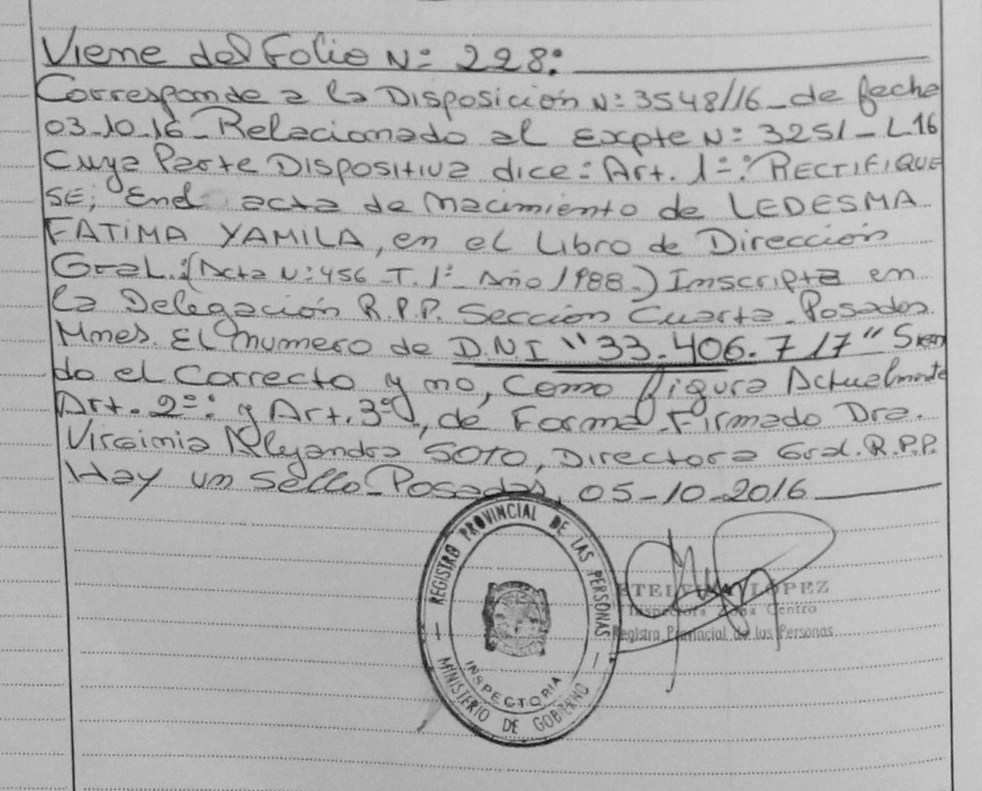 Viene del Folio N: 228:
Corresponde a la Disposición N: 3548/16_de fecha
03_10_16_Relacionado al Expte N: 3251_L16
Cuya Parte Dispositiva dice: Art. 1º: RECTIFIQUE
SE; End acta de nacimiento de LEDESMA
FATIMA YAMILA, en el Libro de Dirección
Gral.:(Acta N:456_T.1º_Año 1988_) Inscripta en
la Delegación R.P.P. Sección Cuarta_Posadas
Mnes. El numero de D.N.I "33.406.717" Sien
do el Correcto y no, Como figura Actualmente
Art. 2º: y Art. 3º, de Forma_Firmado Dra.
Virginia Alejandra SOTO, Directora Gral. R.P.P.
Hay un sello_Posadas, 05_10_2016
REGISTRO PROVINCIAL DE LAS PERSONAS
INSPECTORIA
MINISTERIO DE GOBIERNO
LOPEZ
Inspectora Zona Centro
Registro Provincial de las Personas